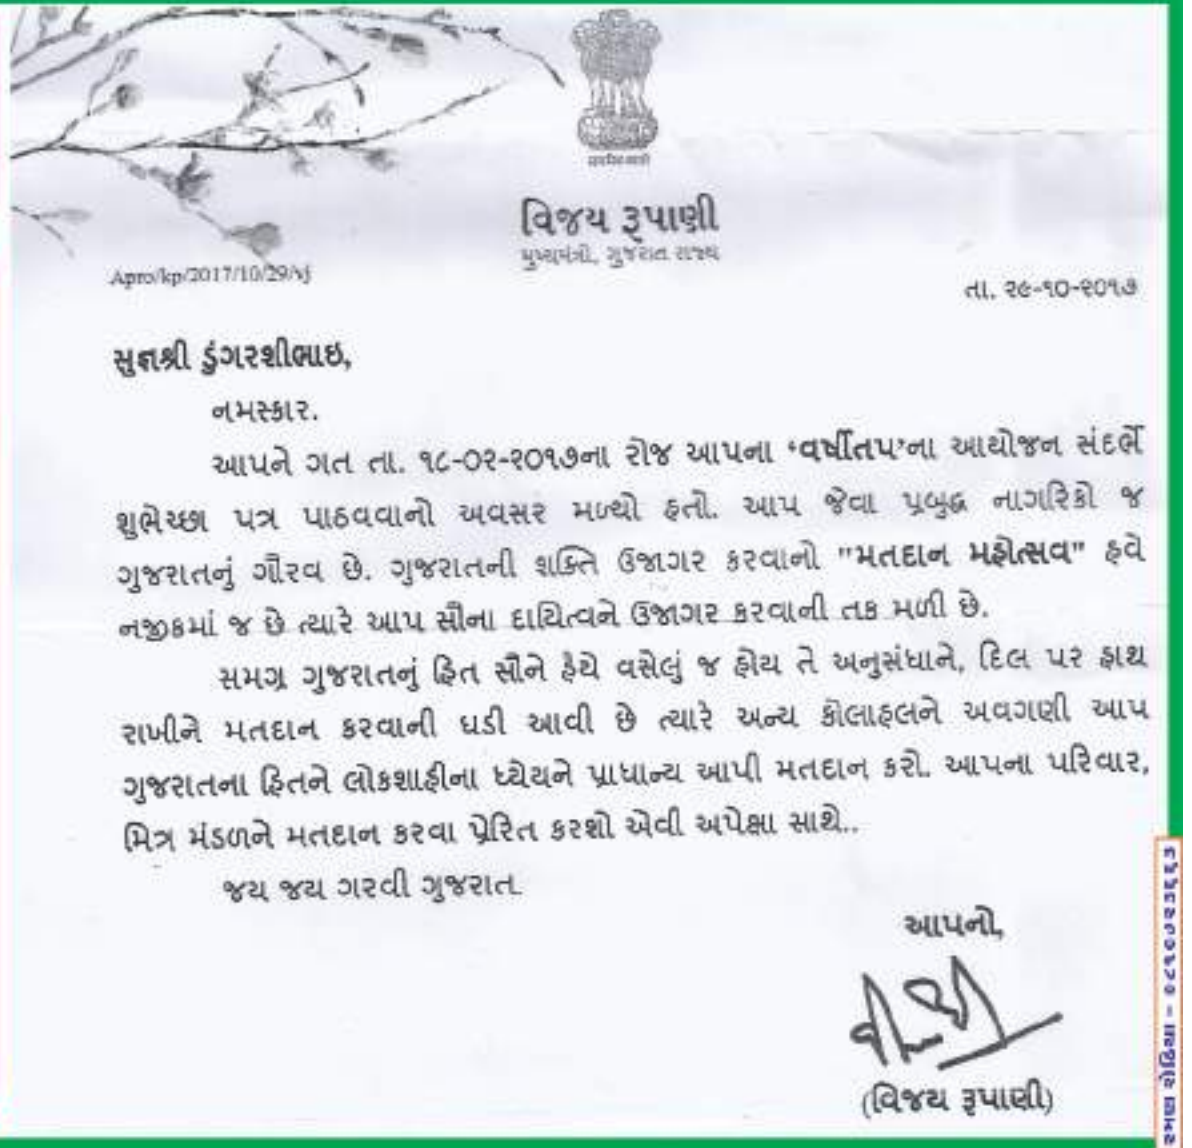 सत्यमेव जयते
વિજય રૂપાણી
મુખ્યમંત્રી, ગુજરાત રાજ્ય
Apro/kp/2017/10/29/vj
તા. ૨૯-૧૦-૨૦૧૭
સુજ્ઞશ્રી ડુંગરશીભાઇ,
નમસ્કાર.
આપને ગત તા. ૧૮-૦૨-૨૦૧૭ના રોજ આપના ‘વર્ષીતપ’ના આયોજન સંદર્ભે
શુભેચ્છા પત્ર પાઠવવાનો અવસર મળ્યો હતો. આપ જેવા પ્રબુદ્ધ નાગરિકો જ
ગુજરાતનું ગૌરવ છે. ગુજરાતની શક્તિ ઉજાગર કરવાનો "મતદાન મહોત્સવ" હવે
નજીકમાં જ છે ત્યારે આપ સૌના દાયિત્વને ઉજાગર કરવાની તક મળી છે.
સમગ્ર ગુજરાતનું હિત સૌને હૈયે વસેલું જ હોય તે અનુસંધાને, દિલ પર હાથ
રાખીને મતદાન કરવાની ઘડી આવી છે ત્યારે અન્ય કોલાહલને અવગણી આપ
ગુજરાતના હિતને લોકશાહીના ધ્યેયને પ્રાધાન્ય આપી મતદાન કરો. આપના પરિવાર,
મિત્ર મંડળને મતદાન કરવા પ્રેરિત કરશો એવી અપેક્ષા સાથે..
જય જય ગરવી ગુજરાત.
આપનો,
(વિજય રૂપાણી)